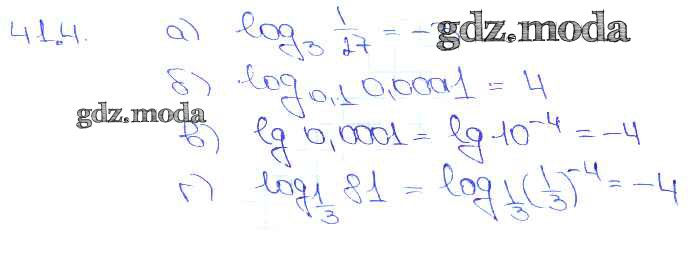 41.4. а) log₃ 1/27 = - gdz.moda
б) log₀,₁ 0,0001 = 4
gdz.moda
в) lg 0,0001 = lg 10⁻⁴ = -4
г) log₁/₃ 81 = log₁/₃ (1/3)⁻⁴ = -4